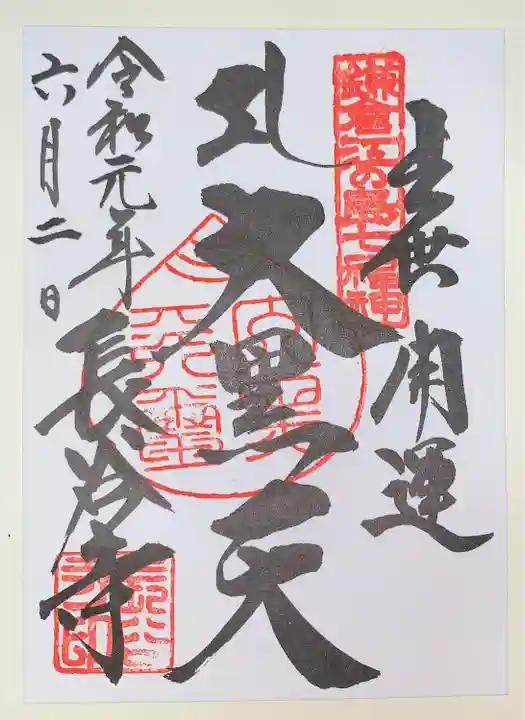 出世開運
鎌倉江の島七福神
大黒天
令和元年
六月二日
長谷寺